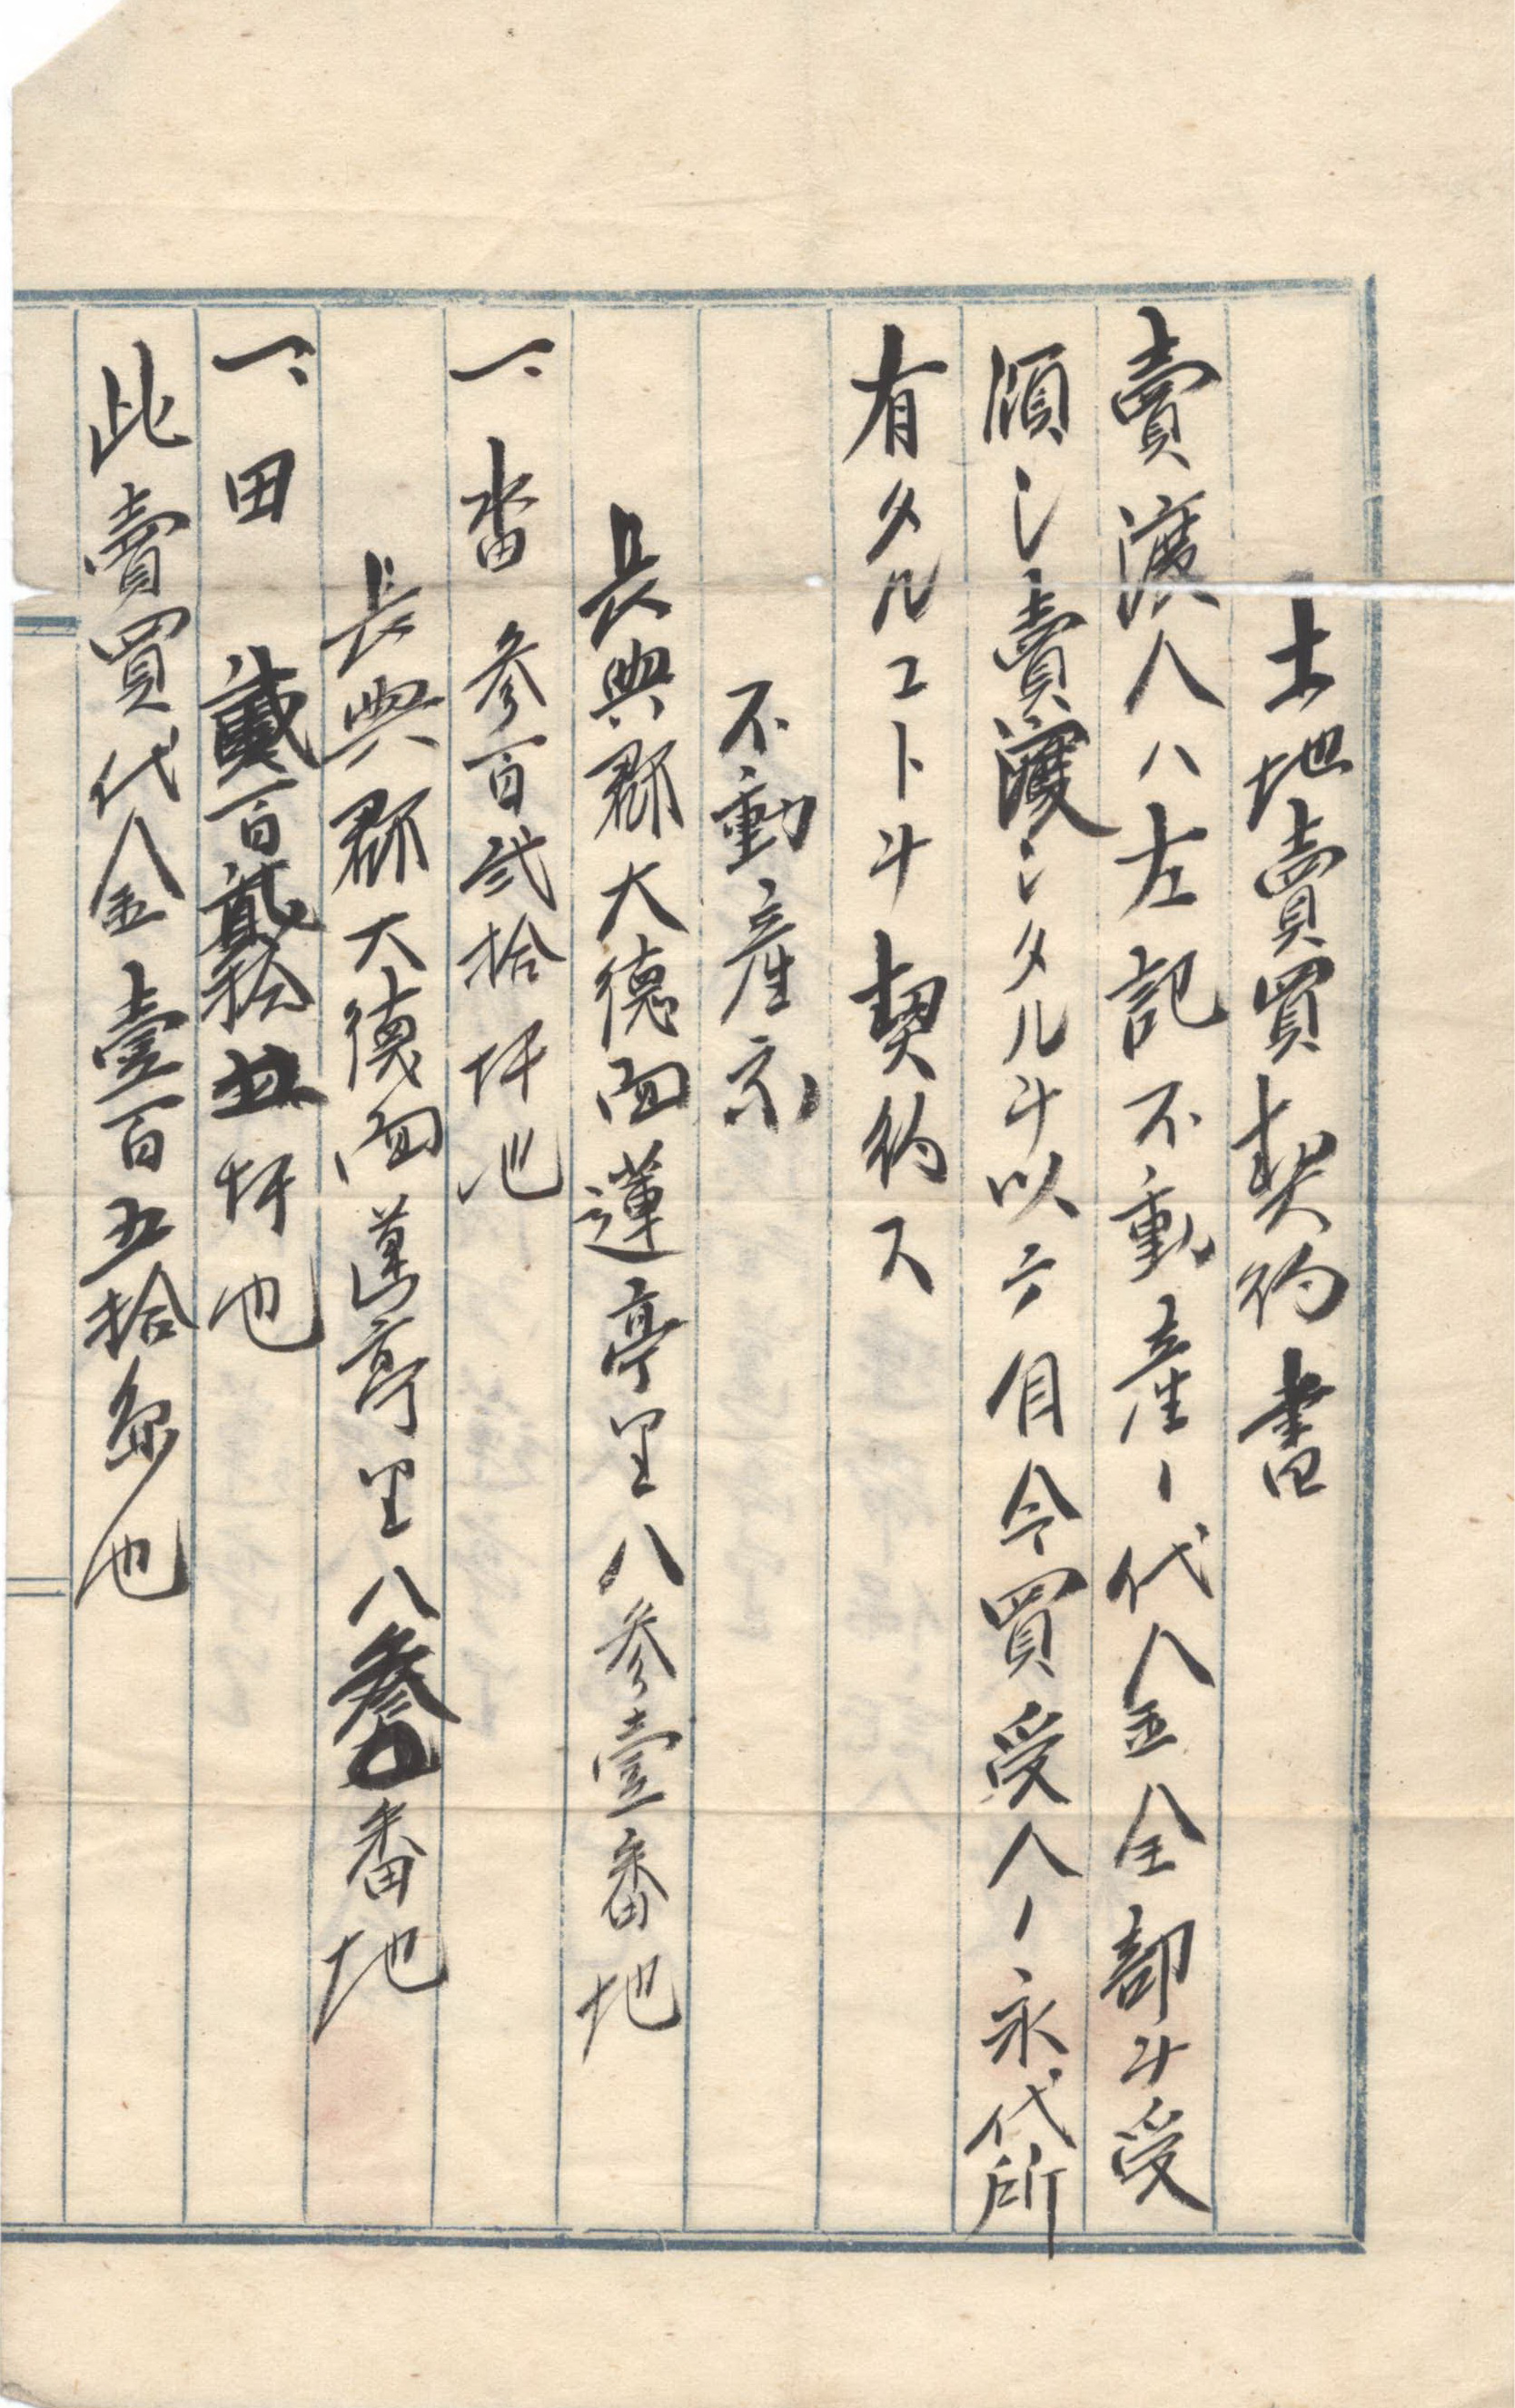 土地賣買契約書
賣渡人ハ左記不動産ノ代金全部ヲ受
領シ賣渡シタルヲ以テ自今買受人ノ永代所
有タルコトヲ契約ス
不動産示
長興郡大德面蓮亭里八参壹番地
一、畓 参百弐拾坪也
長興郡大德面蓮亭里八参〇番地
一、田 貳百貳拾五坪也
此賣買代金壹百五拾圓也